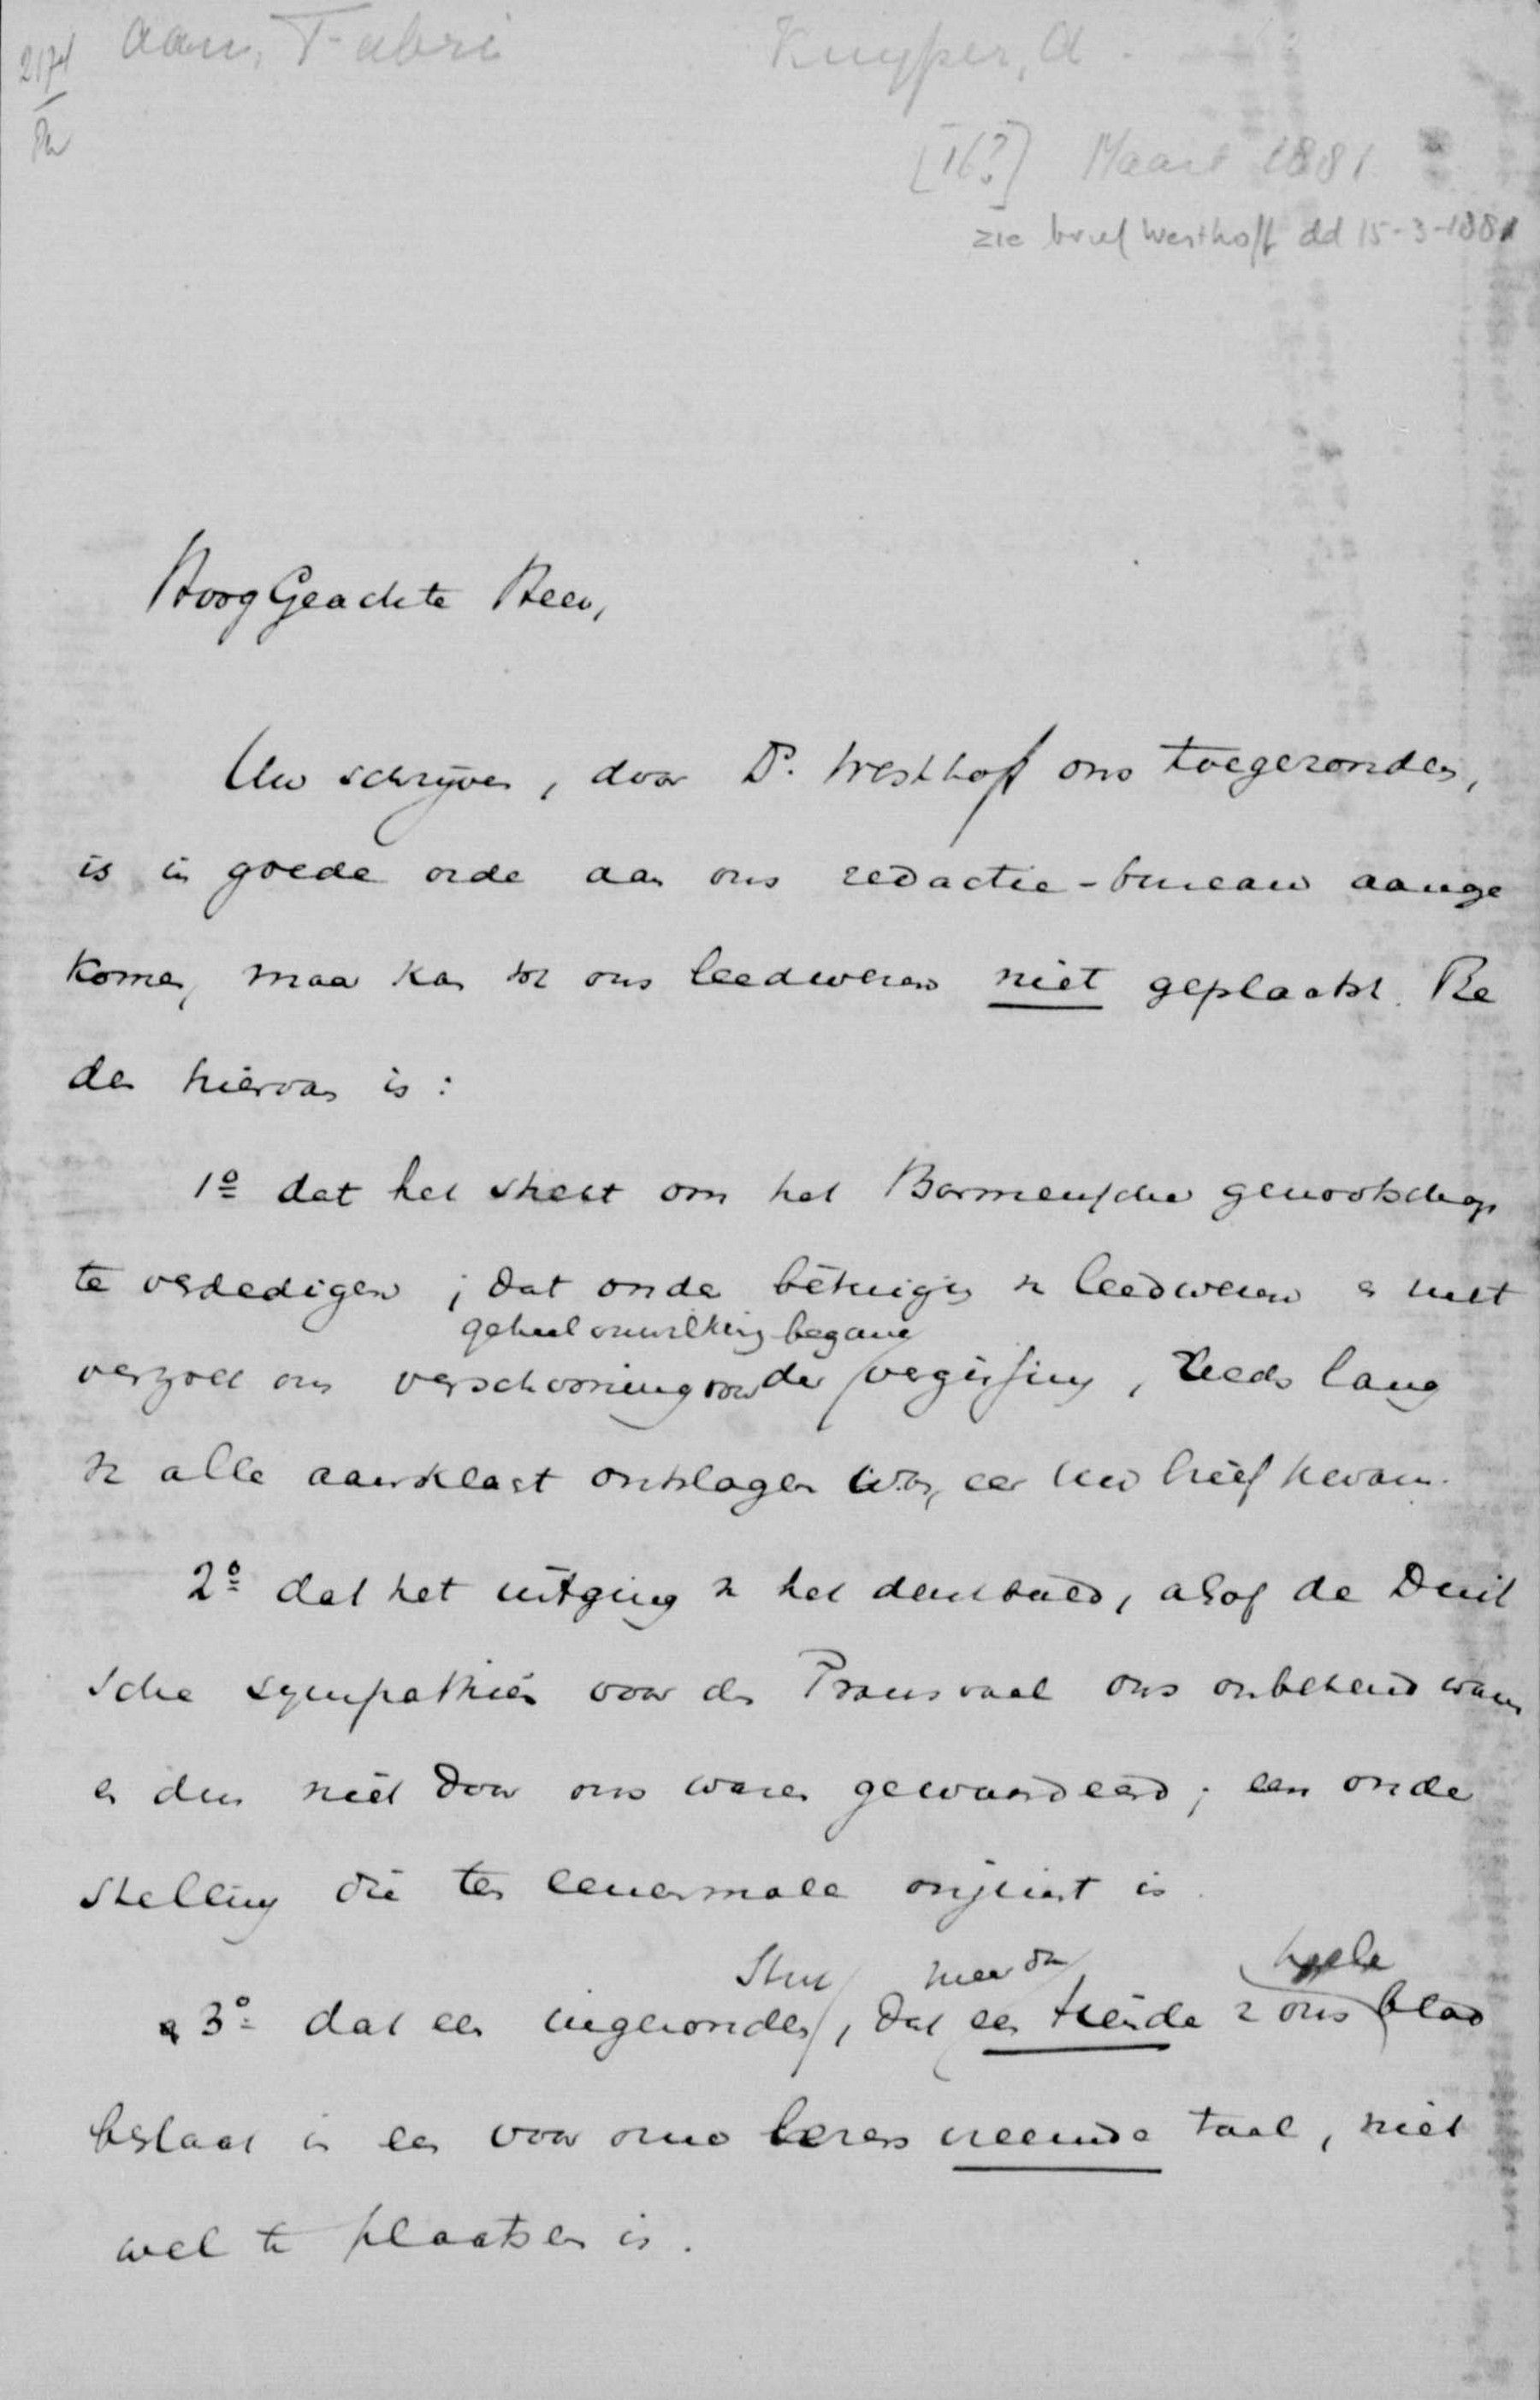 aan, Fabri Kuyper, A.
2174
[16?] Maart 1881
zie brief Westhoff dd 15-3-1881
HoogGeachte Heer,
Uw schrijven, door Ds. Westhoff ons toegezonden,
is in goede orde aan ons redactie-bureau aange
komen, maar kan tot ons leedwezen niet geplaatst. Re
den hiervan is :
1o dat het strekt om het Barmensche genootschap
te verdedigen ; dat onder betuiging van leedwezen en met
geheel onwillekeurig begane
verzoek om verschooning voor de vergissing, reeds lang
van alle aanklacht ontslagen was, eer Uw brief kwam.
2o dat het uitging van het denkbeeld, alsof de Duit
sche sympathiën voor de Transvaal ons onbekend waren
en dus niet door ons waren gewaardeerd ; een onder
stelling die ten eenenmale onjuist is.
Stuk meer dan heele
en 3o dat een ingezonden, dat een tiende van ons blad
beslaat in een voor onze lezers vreemde taal, niet
wel te plaatsen is.